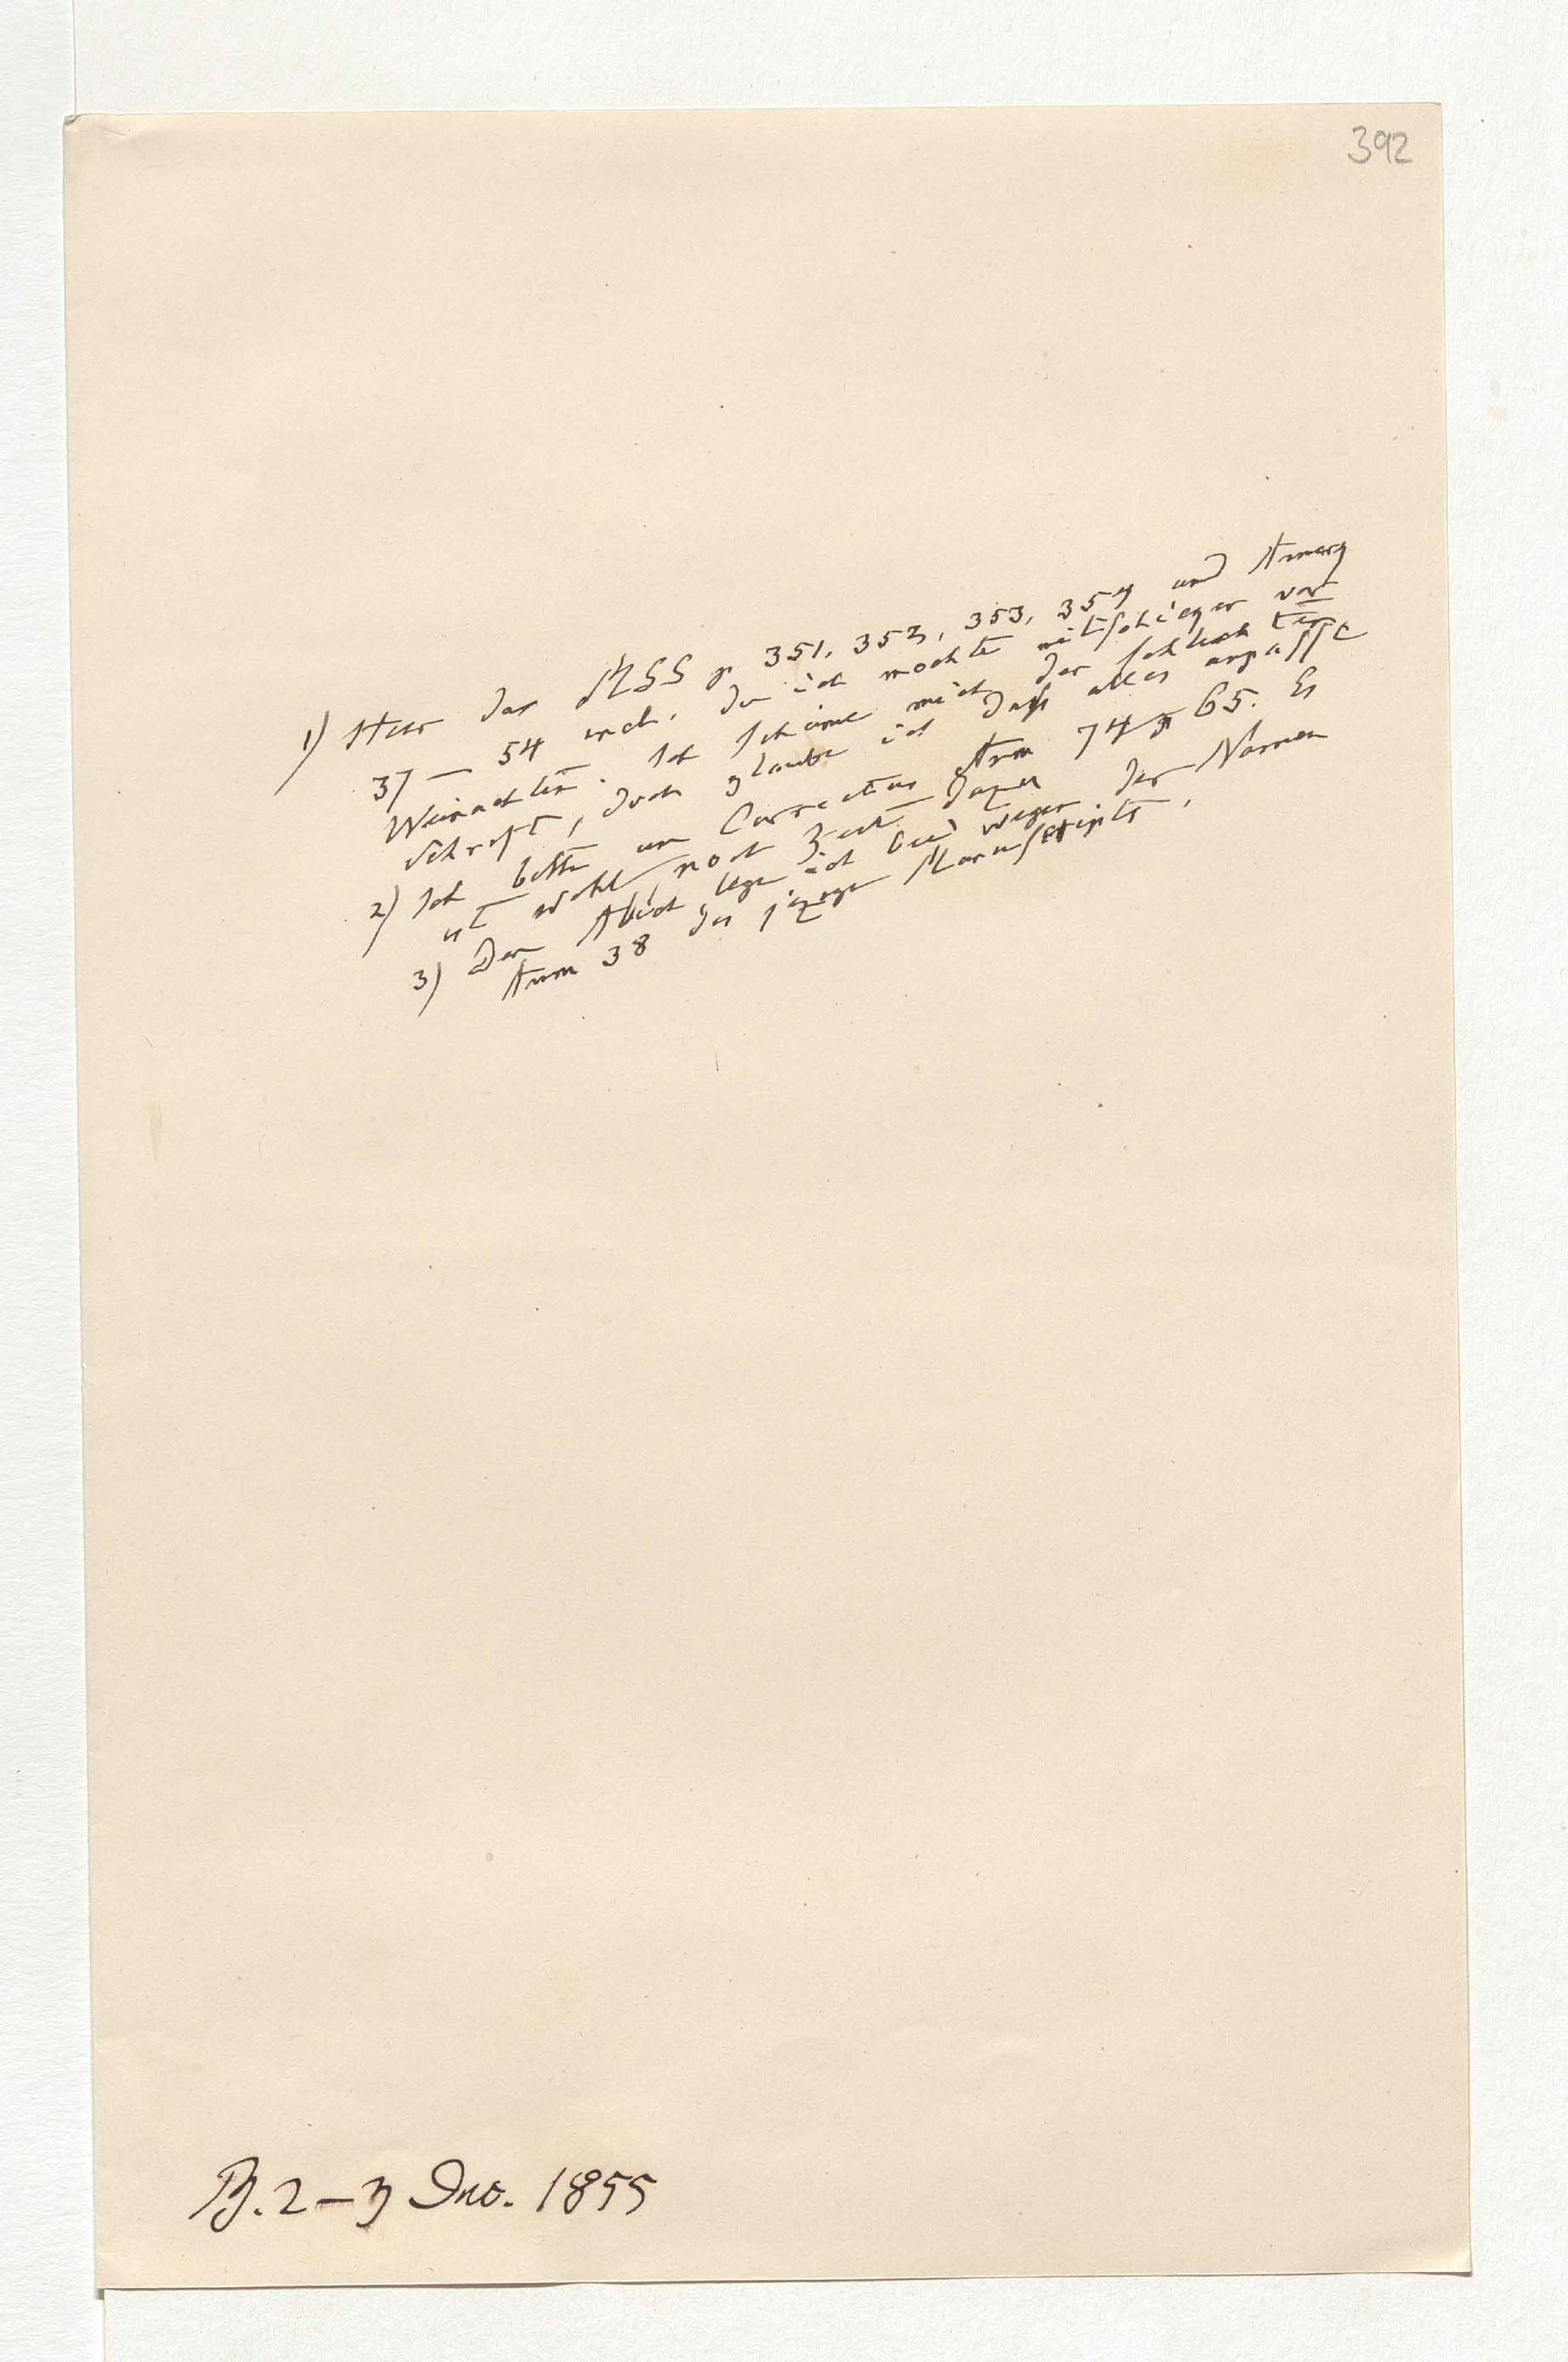 392
1) Hier das MSS p 351, 352, 353, 354 und Anmerg
37 — 54 inch. die ich möchte mitschicken vor
Weinachten. Ich schäme mich der schlechten
Schrift, doch glaube ich daß alles anpasse
2) Ich bitte um Correctur Anm 74 65. Es
ist wohl noch Zeit dazu
3) Den Abich lege ich bei wegen der Namen
Anm 38 des jezigen Manuscripts.
B. 2–3 Dec. 1855